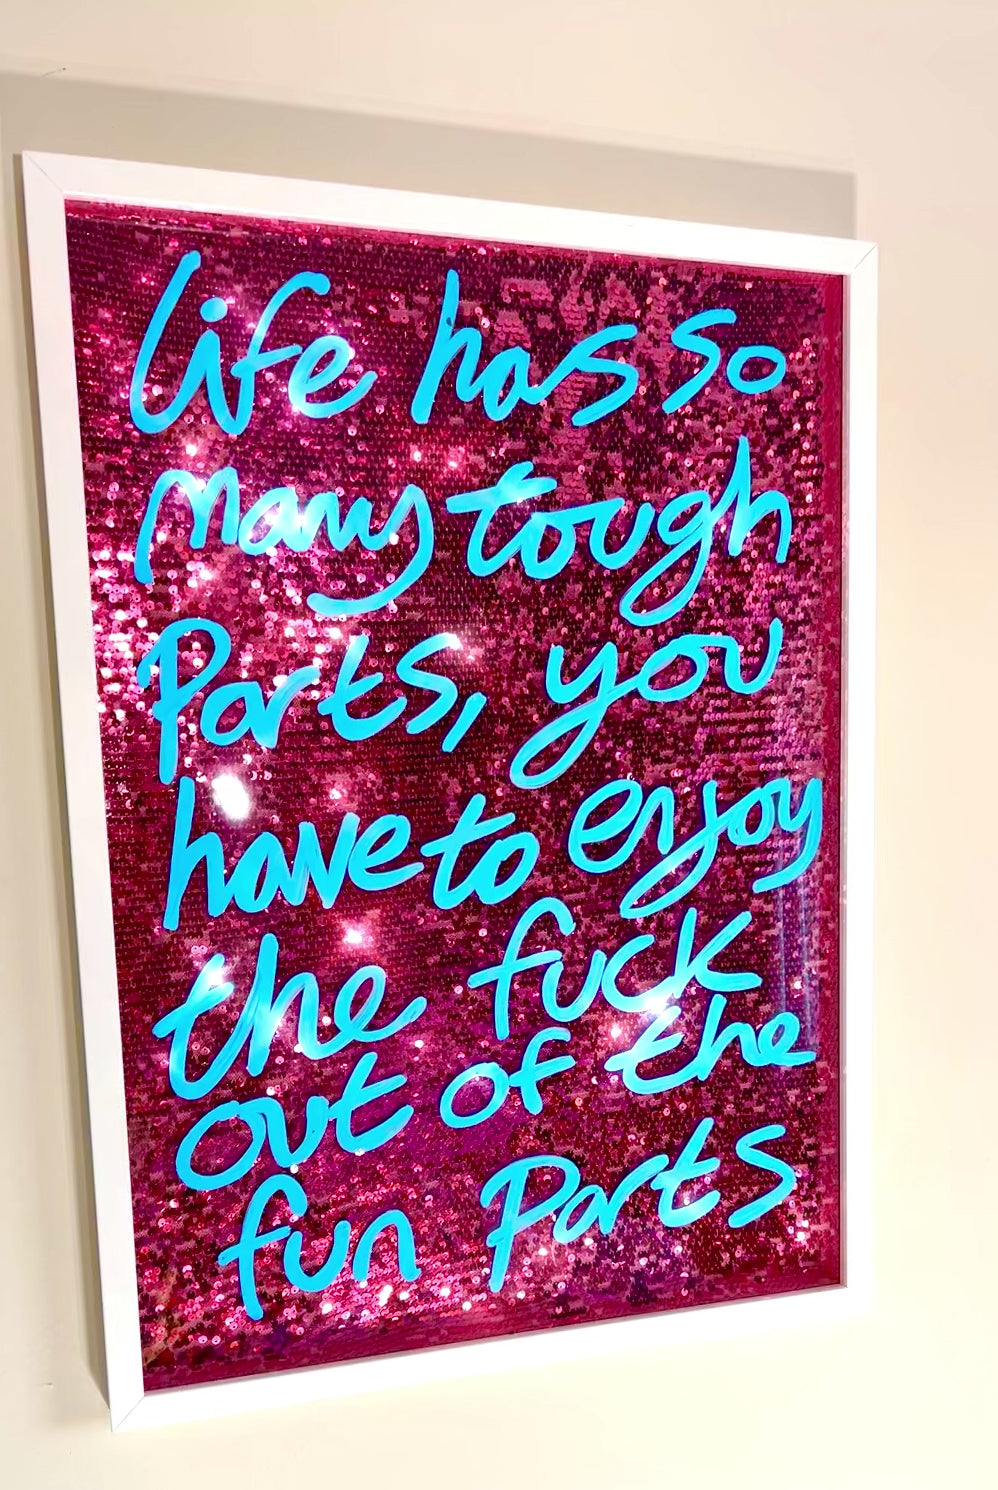 life has so
many tough
Parts, you
have to enjoy
the fuck
out of the
fun Parts